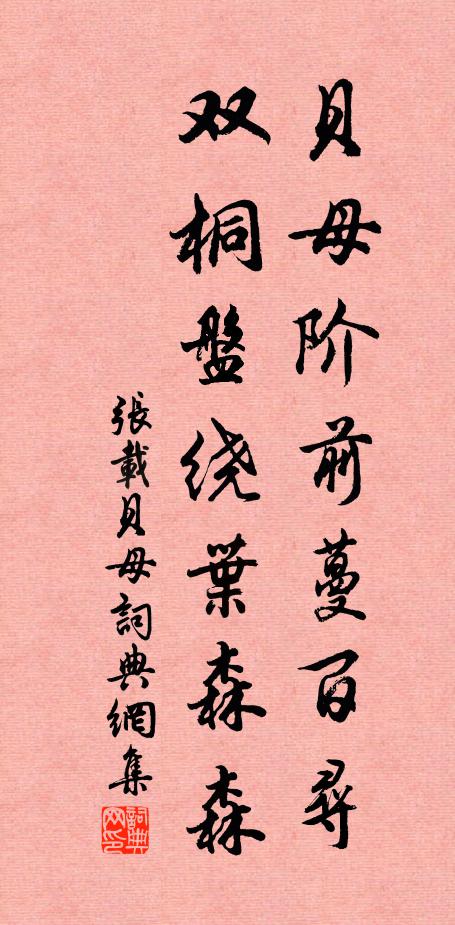 貝母阶前蔓百尋
双桐盤绕葉森森
張載貝母詞典網集
詞典网印